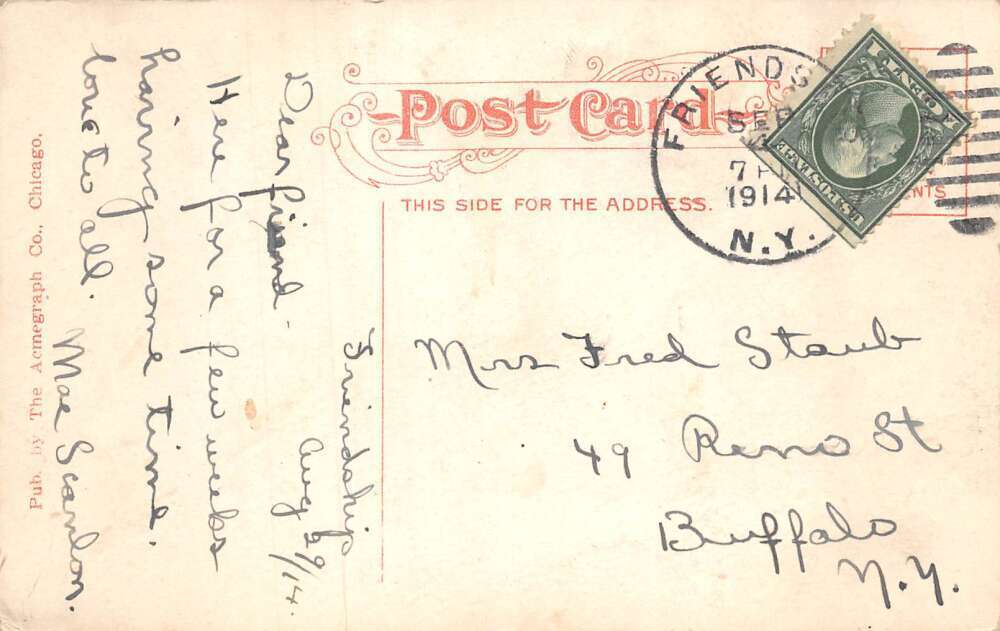 Post Card
THIS SIDE FOR THE ADDRESS.
FRIENDS
SEP
7 P
1914
N.Y.
Friendship
Aug 29/14.
Dear friend.
Here for a few weeks
having some time.
love to all.
Mae Scanlon.
Mrs Fred Staub
49 Reno St
Buffalo
N.Y.
Pub. by The Acmegraph Co., Chicago.